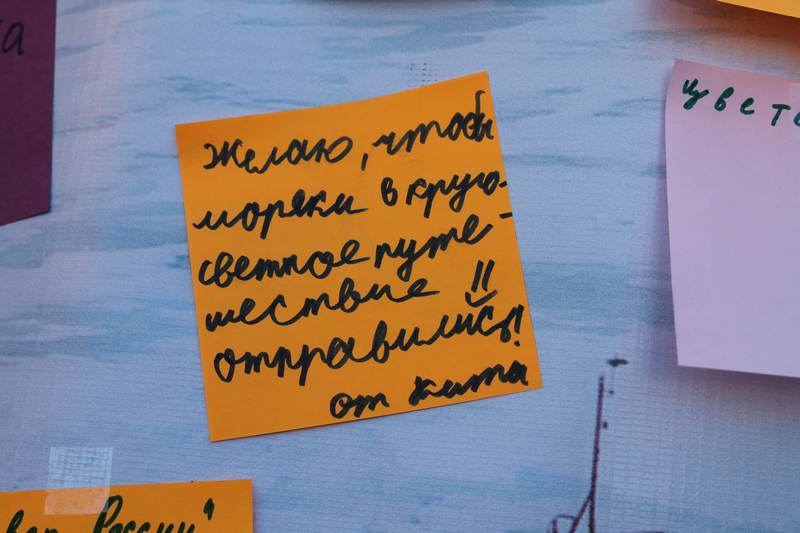 Желаю, чтобы
моряки в круго-
светное путе-
шествие
отправились!
от Кита
цвето
России"
а